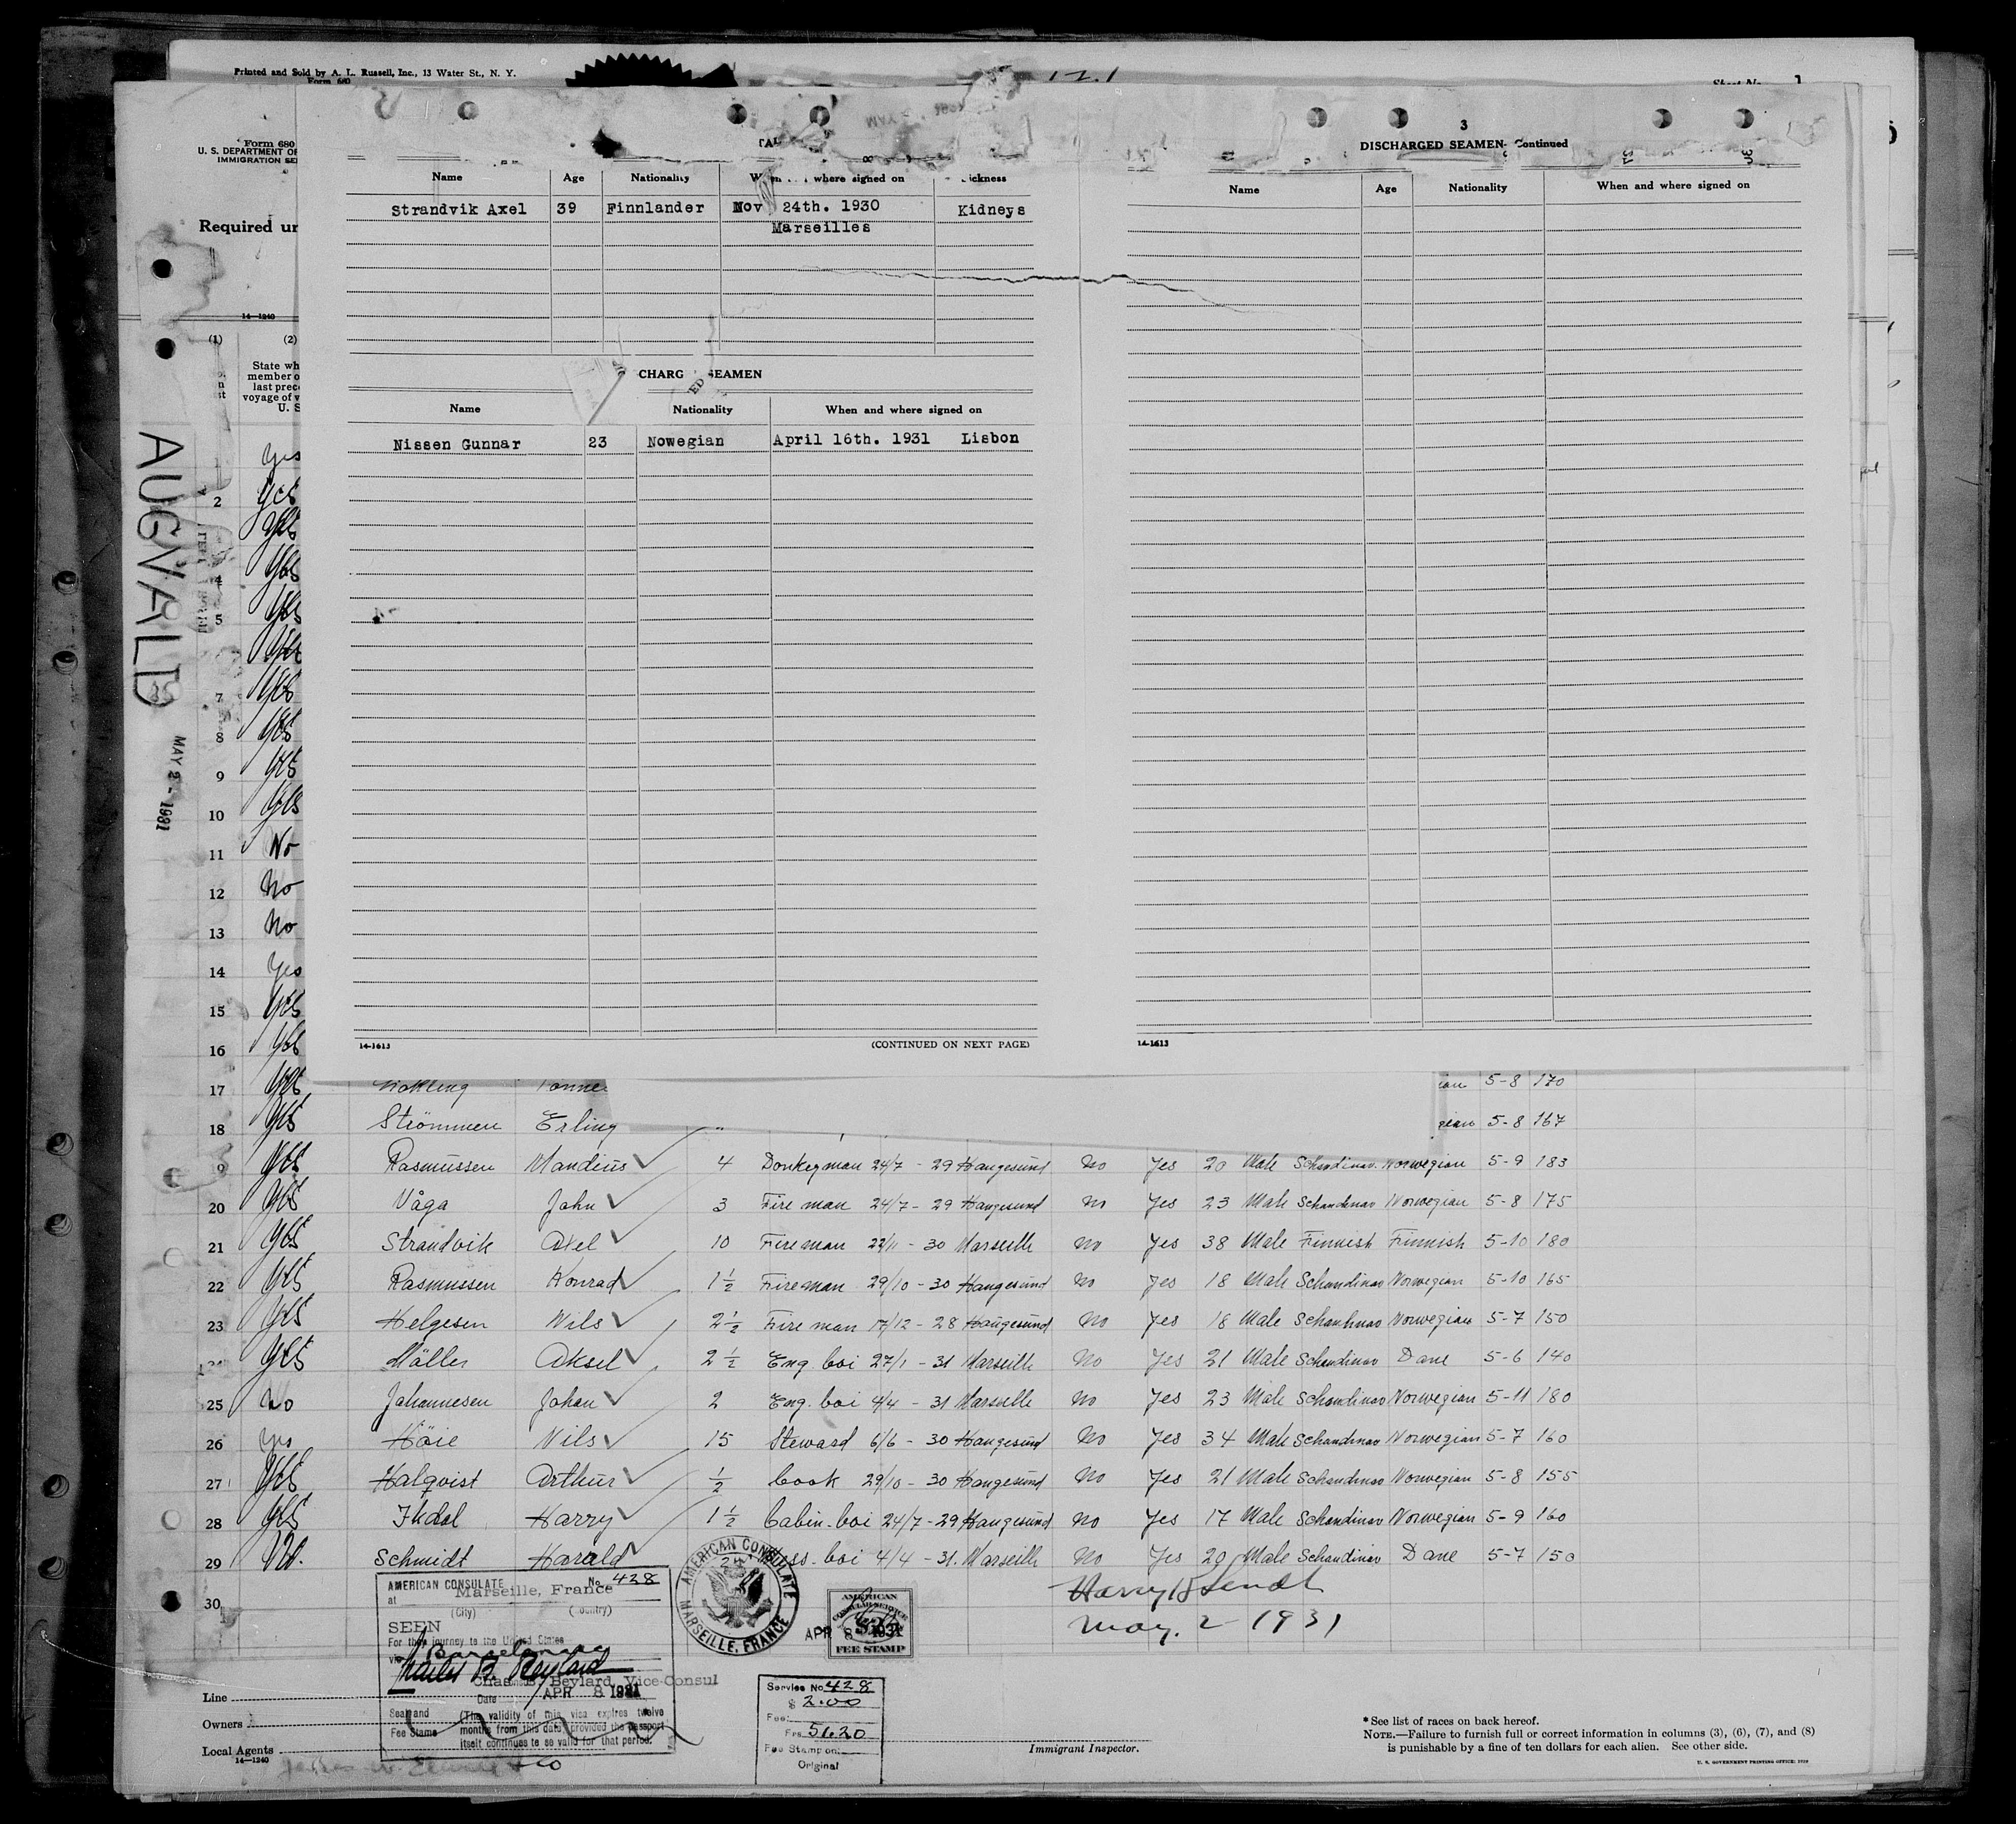 Printed and Sold by A. L. Russell, Inc., 13 Water St., N. Y.
Form 680
U. S. DEPARTMENT OF
IMMIGRATION SE
Required un
14—1240
(1) (2)
State wh
member o
last prec
voyage of v
U. S
AUGVALD
MAY 2 - 1931
Name Age Nationality When where signed on ickness
Strandvik Axel 39 Finnlander Nov 24th. 1930 Kidneys
Marseilles
CHARG SEAMEN
Name Nationality When and where signed on
Nissen Gunnar 23 Nowegian April 16th. 1931 Lisbon
14-1613 (CONTINUED ON NEXT PAGE)
3
DISCHARGED SEAMEN- Continued
Name Age Nationality When and where signed on
14-1613
Yes
2 Yes
Yes
4 Yes
5 Yes
Yes
7 Yes
8 Yes
9 Yes
10 Yes
11 No
12 No
13 No
14 Yes
15 Yes
16 Yes
17 Yes 5-8 170
18 Yes Strömmen Erling 5-8 167
9 Yes Rasmussen Mandius 4 Donkeyman 24/7 - 29 Haugesund No Yes 20 Male Schandinav. Norwegian 5-9 183
20 Yes Våga John 3 Fire man 24/7 - 29 Haugesund No Yes 23 Male Schandinav Norwegian 5-8 175
21 Yes Strandvik Axel 10 Fireman 22/11 - 30 Marseille No Yes 38 Male Finnish Finnish 5-10 180
22 Yes Rasmussen Konrad 1 1/2 Fireman 29/10 - 30 Haugesund No Yes 18 Male Schandinav Norwegian 5-10 165
23 Yes Helgesen Nils 2 1/2 Fire man 17/12 - 28 Haugesund No Yes 18 Male Schandinav Norwegian 5-7 150
24 Yes Möller Aksel 2 1/2 Eng. boi 27/1 - 31 Marseille No Yes 21 Male Schandinav Dane 5-6 140
25 No Johannesen Johan 2 Eng. boi 4/4 - 31 Marseille No Yes 23 Male Schandinav Norwegian 5-11 180
26 Yes Höie Nils 15 Steward 6/6 - 30 Haugesund No Yes 34 Male Schandinav Norwegian 5-7 160
27 Yes Halqvist Arthur 1/2 Cook 29/10 - 30 Haugesund No Yes 21 Male Schandinav Norwegian 5-8 155
28 Yes Ihdal Harry 1 1/2 Cabin-boi 24/7 - 29 Haugesund No Yes 17 Male Schandinav Norwegian 5-9 160
29 No. Schmidt Harald ess-boi 4/4 - 31. Marseille No Yes 20 Male Schandinav Dane 5-7 150
30
AMERICAN CONSULATE No. 428
at Marseille, France
(City) (Country)
SEEN
For the journey to the United States
via Barcelona
Charles B. Beylard
Chas. B. Beylard, Vice-Consul
Date APR 8 1931
Seal and
Fee Stamp
(The validity of this visa expires twelve
months from this date, provided the passport
itself continues to be valid for that period.
AMERICAN CONSULATE
MARSEILLE, FRANCE
APR 8 1931
AMERICAN
CONSULAR SERVICE
FEE STAMP
May. 2 - 1931
Service No. 428
$ 2.00
Fee:
Frs. 51.20
Fee Stamp on:
Original
Line
Owners
Local Agents
14—1240
Immigrant Inspector.
* See list of races on back hereof.
NOTE.—Failure to furnish full or correct information in columns (3), (6), (7), and (8)
is punishable by a fine of ten dollars for each alien. See other side.
U. S. GOVERNMENT PRINTING OFFICE: